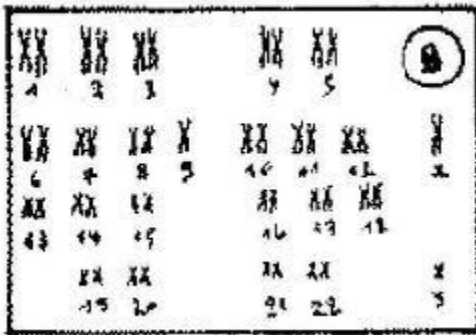 1 2 3 4 5 B
6 7 8 9 10 11 12 x
13 14 15 16 17 18
19 20 21 22 y